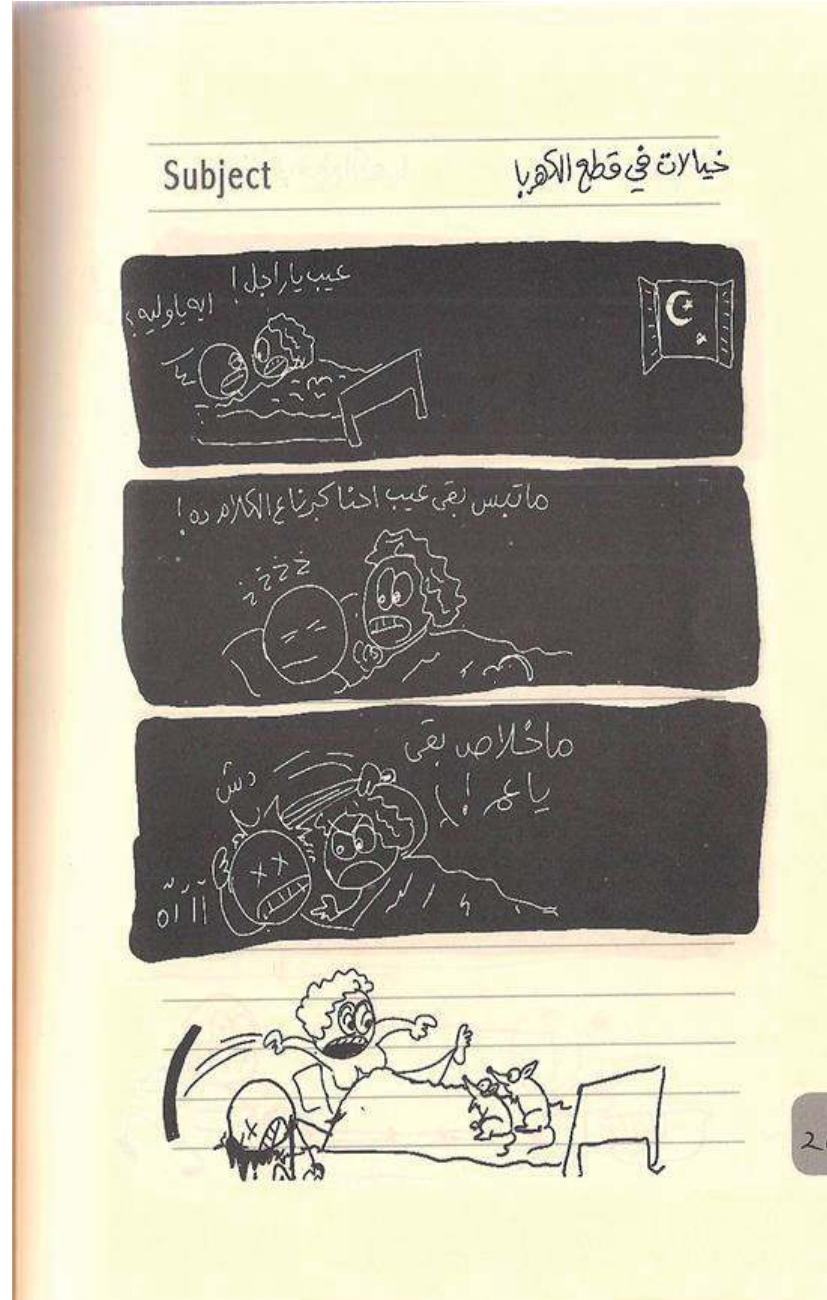 Subject
خيالات في قطع الكهربا
عيب يا راجل!
ايه يا وليه؟
ما تبس بقى عيب احنا كبرنا ع الكلام ده!
zzzz
ما خلاص بقى
يا عمر!
دش
آآآه